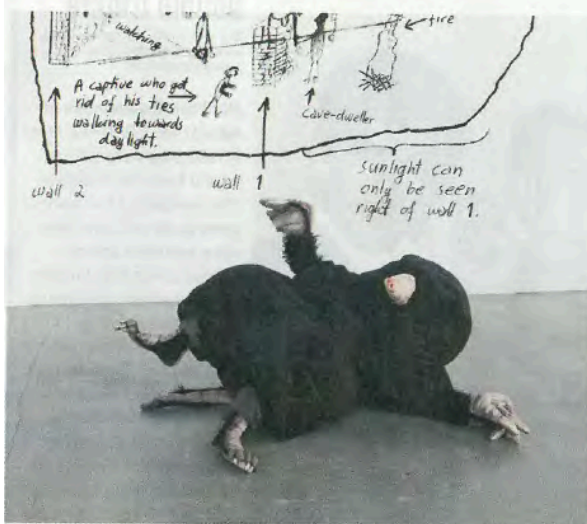 watching
fire
A captive who got
rid of his ties
walking towards
daylight.
cave-dweller
wall 2
wall 1
sunlight can
only be seen
right of wall 1.